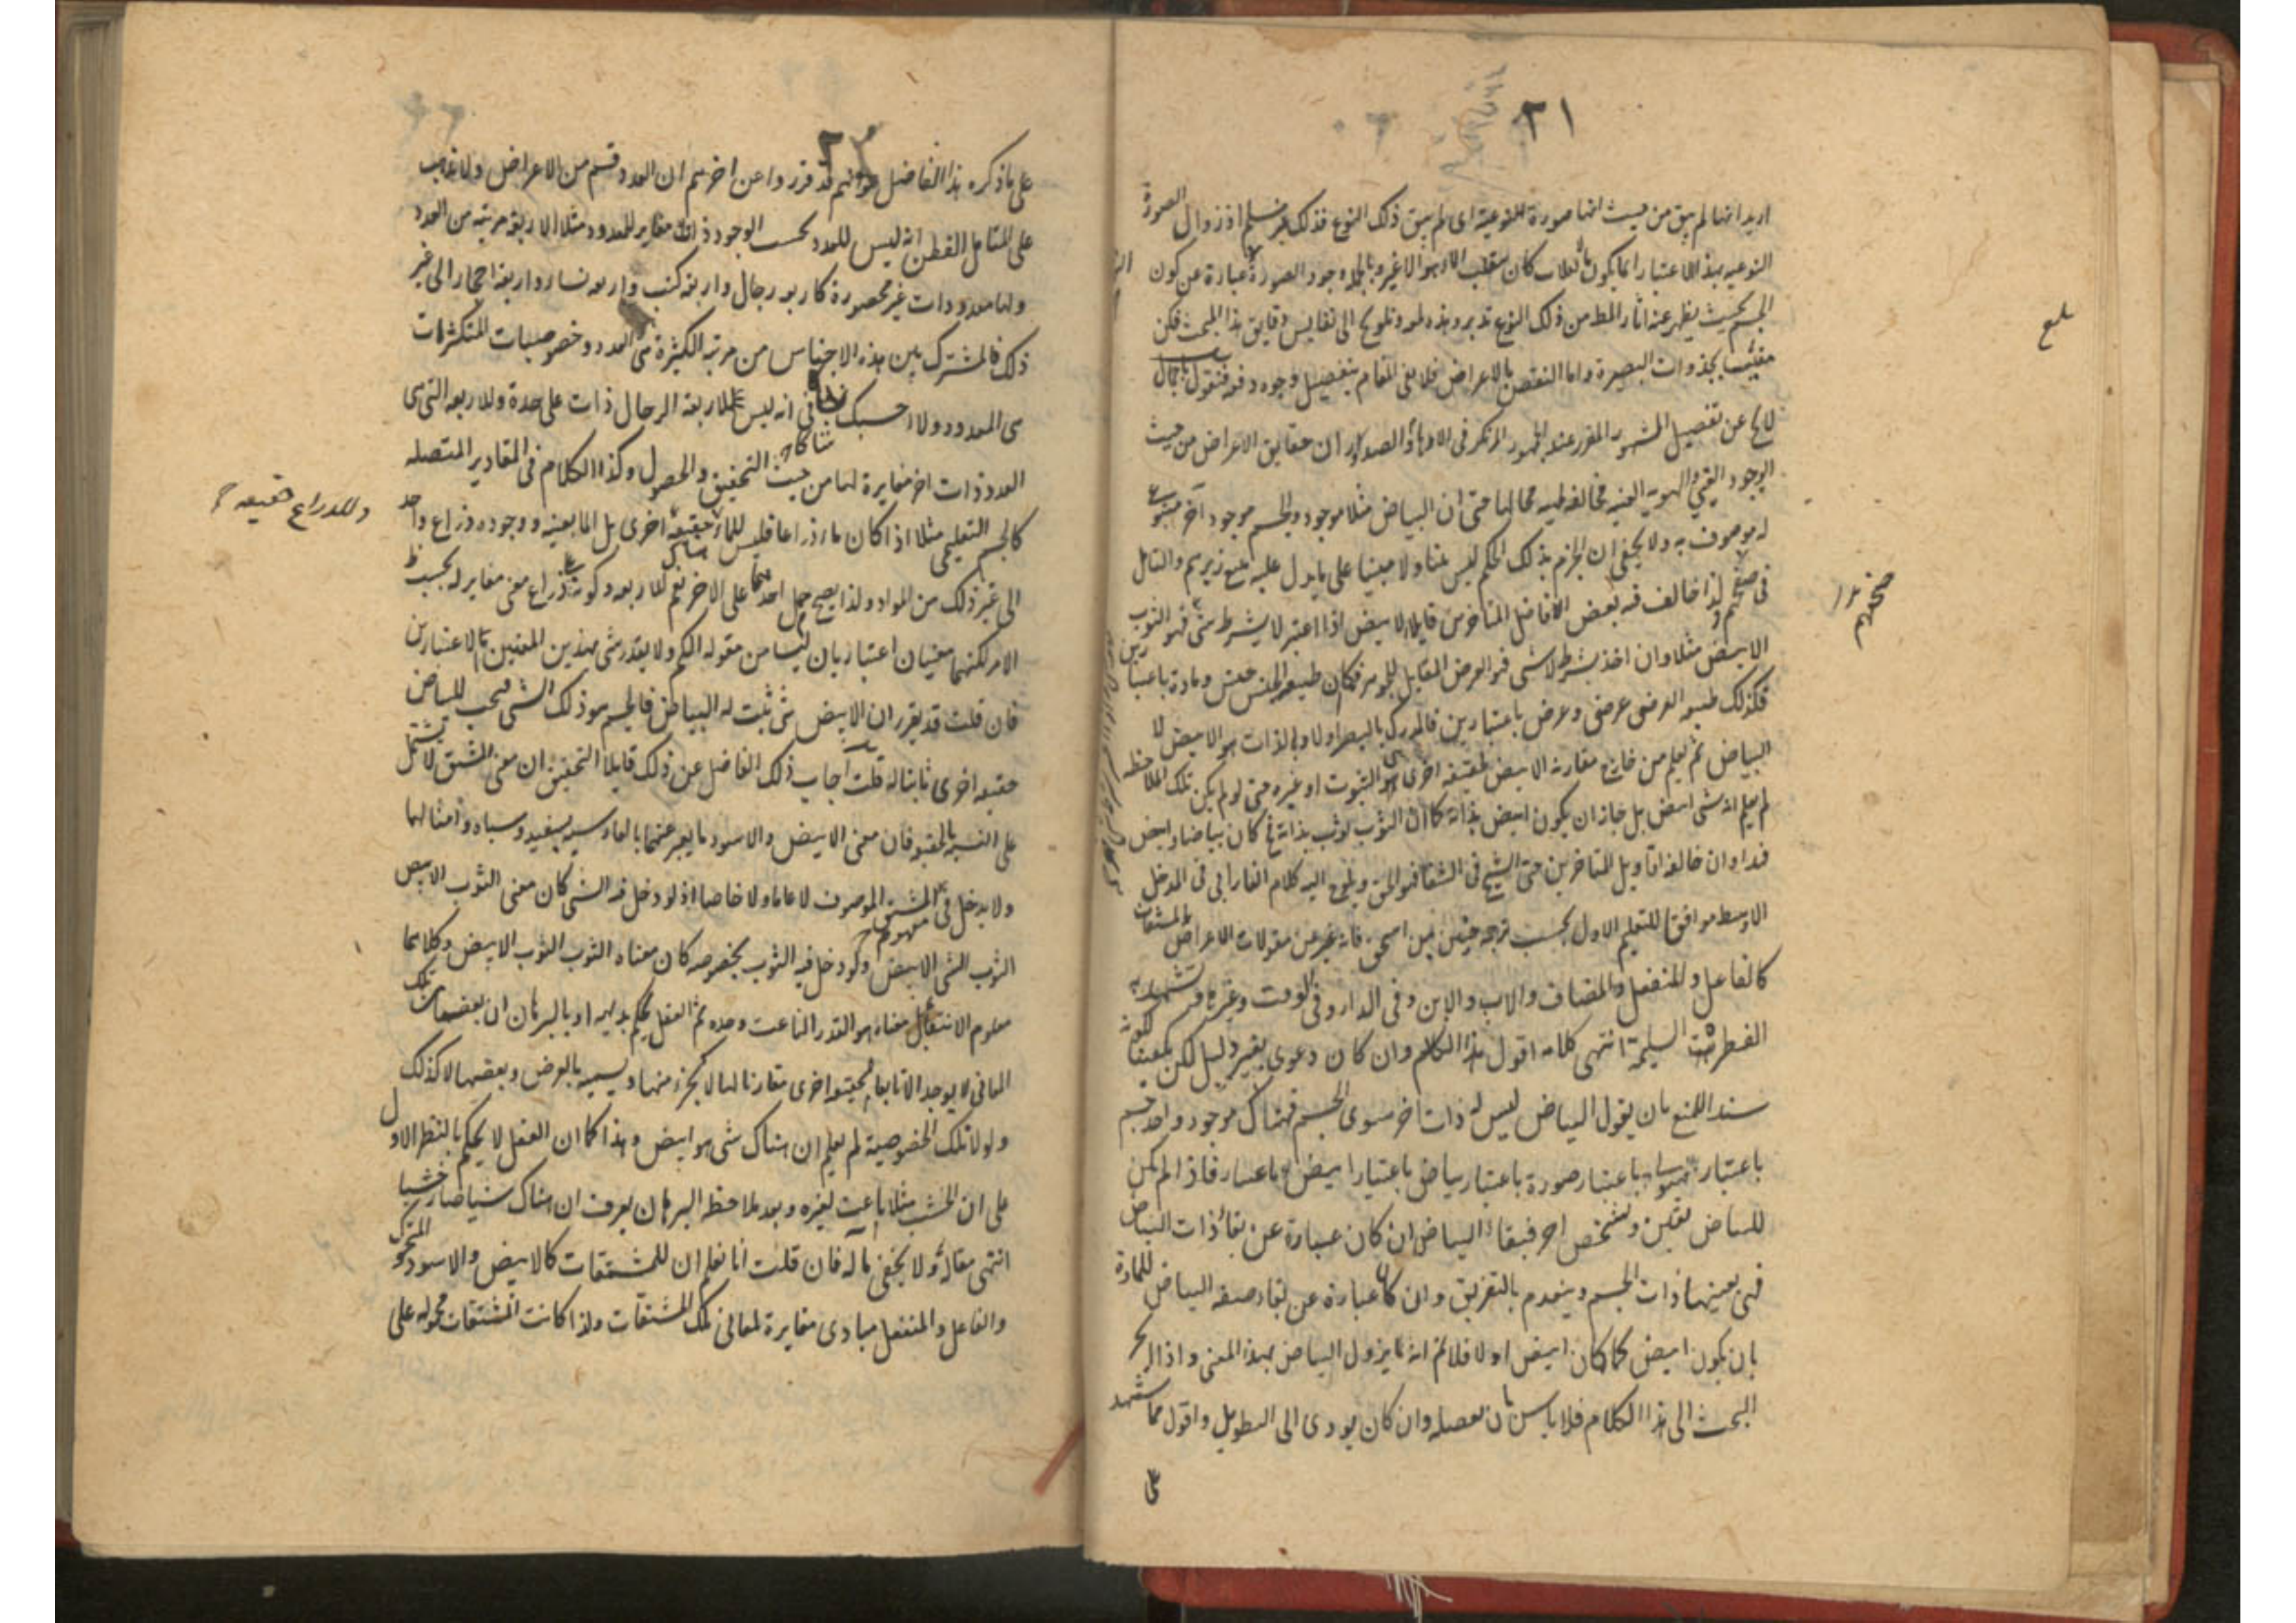 ٢١
اريد انها لم يبق من حيث انها صورة للنوعية اى لم يبق ذلك النوع فذلك غير مسلم اذ زوال الصورة
النوعيه بهذا الاعتبار انما يكون بانقلاب الماء هواء لا غير وبالجملة وجود الصورة عبارة عن كون
الجسم بحيث يظهر عنه اثار المط من ذلك النوع تدبر وهذه لمعة وتلويح الى نفايس دقايق هذا المبحث فكن
بجذوات البصيرة واما النقض بالاعراض فلا يفى المقام بتفصيل وجوه دفعه فنقول باجمال
عن تفصيل المشهور المقرر عند الجمهور المرتكز فى الاذهان والصدور ان حقايق الاعراض من حيث
الوجود العينى والهوية العينيه مخالفه لهية محالها حتى ان البياض مثلا موجود والجسم موجود آخر
له موصوف به ولا يخفى ان الجزم بذلك الحكم ليس بينا ولا مبينا على ما يدل عليه تتبع زبرهم والتامل
فى صحفهم ولذا خالف فيه بعض الافاضل المتاخرين قايلا الابيض اذا اعتبر لا بشرط شى فهو الثوب
الابيض مثلا وان اخذ بشرط لا شى فهو العرض المقابل للجوهر فكما ان طبيعة الجنس جنس ومادة باعتبارين
فكذلك طبيعة العرضى عرضى وعرض باعتبارين فالمدرك بالبصر اولا وبالذات هو الابيض لا
البياض ثم يعلم من خارج مقارنه الابيض لحقيقه اخرى هى الثوب او غيره حتى لو لم يكن تلك الملاحظه
لم يعلم انه شى ابيض بل جاز ان يكون ابيض بذاته كما ان الثوب ثوب بذاته كان بياضا وابيض
فهذا وان خالف اقاويل المتاخرين حتى الشيخ فى الشفا فهو الحق ويلوح اليه كلام الفارابى فى المدخل
الاوسط موافقا للتعليم الاول بحسب ترجمه حنين بن اسحق فانه عبر عن مقولات الاعراض بالمشتقات
كالفاعل والمنفعل والمضاف والاب والابن وفى الدار وفى الوقت وغيرها
الفطرة السليمة انتهى كلامه اقول هذا الكلام وان كان دعوى بغير دليل لكن يكفينا لكونه
سند المنع بان يقول البياض ليس له ذات اخر سوى الجسم فهناك موجود واحد جسم
باعتبار هيولى باعتبار صورة باعتبار بياض باعتبار ابيض باعتبار فاذا لم يكن
للبياض تعين وتشخص اخر فبقاء البياض ان كان عبارة عن بقاء ذات البياض
فهى بعينها ذات الجسم وينعدم بالتفريق وان كان عبارة عن بقاء صفه البياض للمادة
بان يكون ابيض كما كان ابيض اولا فلا ثم انه يزول البياض بهذا المعنى واذا انجر
البحث الى هذا الكلام فلا باس بان نفصله وان كان يودى الى التطويل واقول مما يشهد
على
٢٢
على ما ذكره هذا الفاضل هو انهم قد قرروا عن اخرهم ان العدد قسم من الاعراض ولا يذهب
على المتامل الفطن انه ليس للعدد بحسب الوجود ذات مغاير للمعدود مثلا الاربعة مرتبه من العدد
ولها معدودات غير محصورة كاربعة رجال واربعة كتب واربعة نساء واربعة احجار الى غير
ذلك فالمشترك بين هذه الاجناس من مرتبه الكثيرة هى العدد وخصوصيات المتكثرات
هى المعدود ولا احسبك شاكا فى انه ليس للاربعة الرجال ذات على حدة وللاربعه التى هى
العدد ذات اخر مغايرة لها من حيث التحقيق والحصول وكذا الكلام فى المقادير المتصله
كالجسم التعليمى مثلا اذا كان ماء ذراعا فليس للماء حقيقة اخرى بل الماء بعينه ووجوده ذراع واحد
وللذراع حقيقه
الى غير ذلك من المواد ولذا يصح حمل احدهما على الاخر نعم للاربعه وكونه ذراع معنى مغاير له بحسب
الامر لكنهما معنيان اعتباريان ليسا من مقوله الكم ولا يقدر شى بهذين المعنيين الاعتبارين
فان قلت قد يقرر ان الابيض شى ثبت له البياض فالجسم هو ذلك الشى فيجب للبياض
حقيقه اخرى ثابتا له قلت اجاب ذلك الفاضل عن ذلك قايلا التحقيق ان معنى المشتق لا يشتمل
على النسبة بالحقيقة فان معنى الابيض والاسود ما يعبر عنهما بالفارسيه بسفيد وسياه وامثالهما
ولا يدخل فى مفهوم المشتق الموصوف لا عاما ولا خاصا اذ لو دخل فيه الشى كان معنى الثوب الابيض
الثوب الشى الابيض ولو دخل فيه الثوب بخصوصه كان معناه الثوب الثوب الابيض وكلاهما
معلوم الانتفاء بل معناه هو القدر الناعت وحده ثم العقل يحكم بديهه او بالبرهان ان بعض تلك
المعانى لا يوجد الا تابعا لحقيقه اخرى مقارنا لها لا كجزء منها ويسميه بالعرض وبعضها لا كذلك
ولولا تلك الخصوصية لم يعلم ان هناك شى هو ابيض وهذا كما ان العقل لا يحكم بالنظر الاول
على ان الخشب مثلا ناعت لغيره وبعد ملاحظه البرهان يعرف ان هناك شيا صار خشبا
انتهى مقاله ولا يخفى ما له فان قلت انا نعلم ان للمشتقات كالابيض والاسود والمتحرك
والفاعل والمنفعل مبادى مغايرة لمعانى تلك المشتقات ولذا كانت المشتقات محموله على